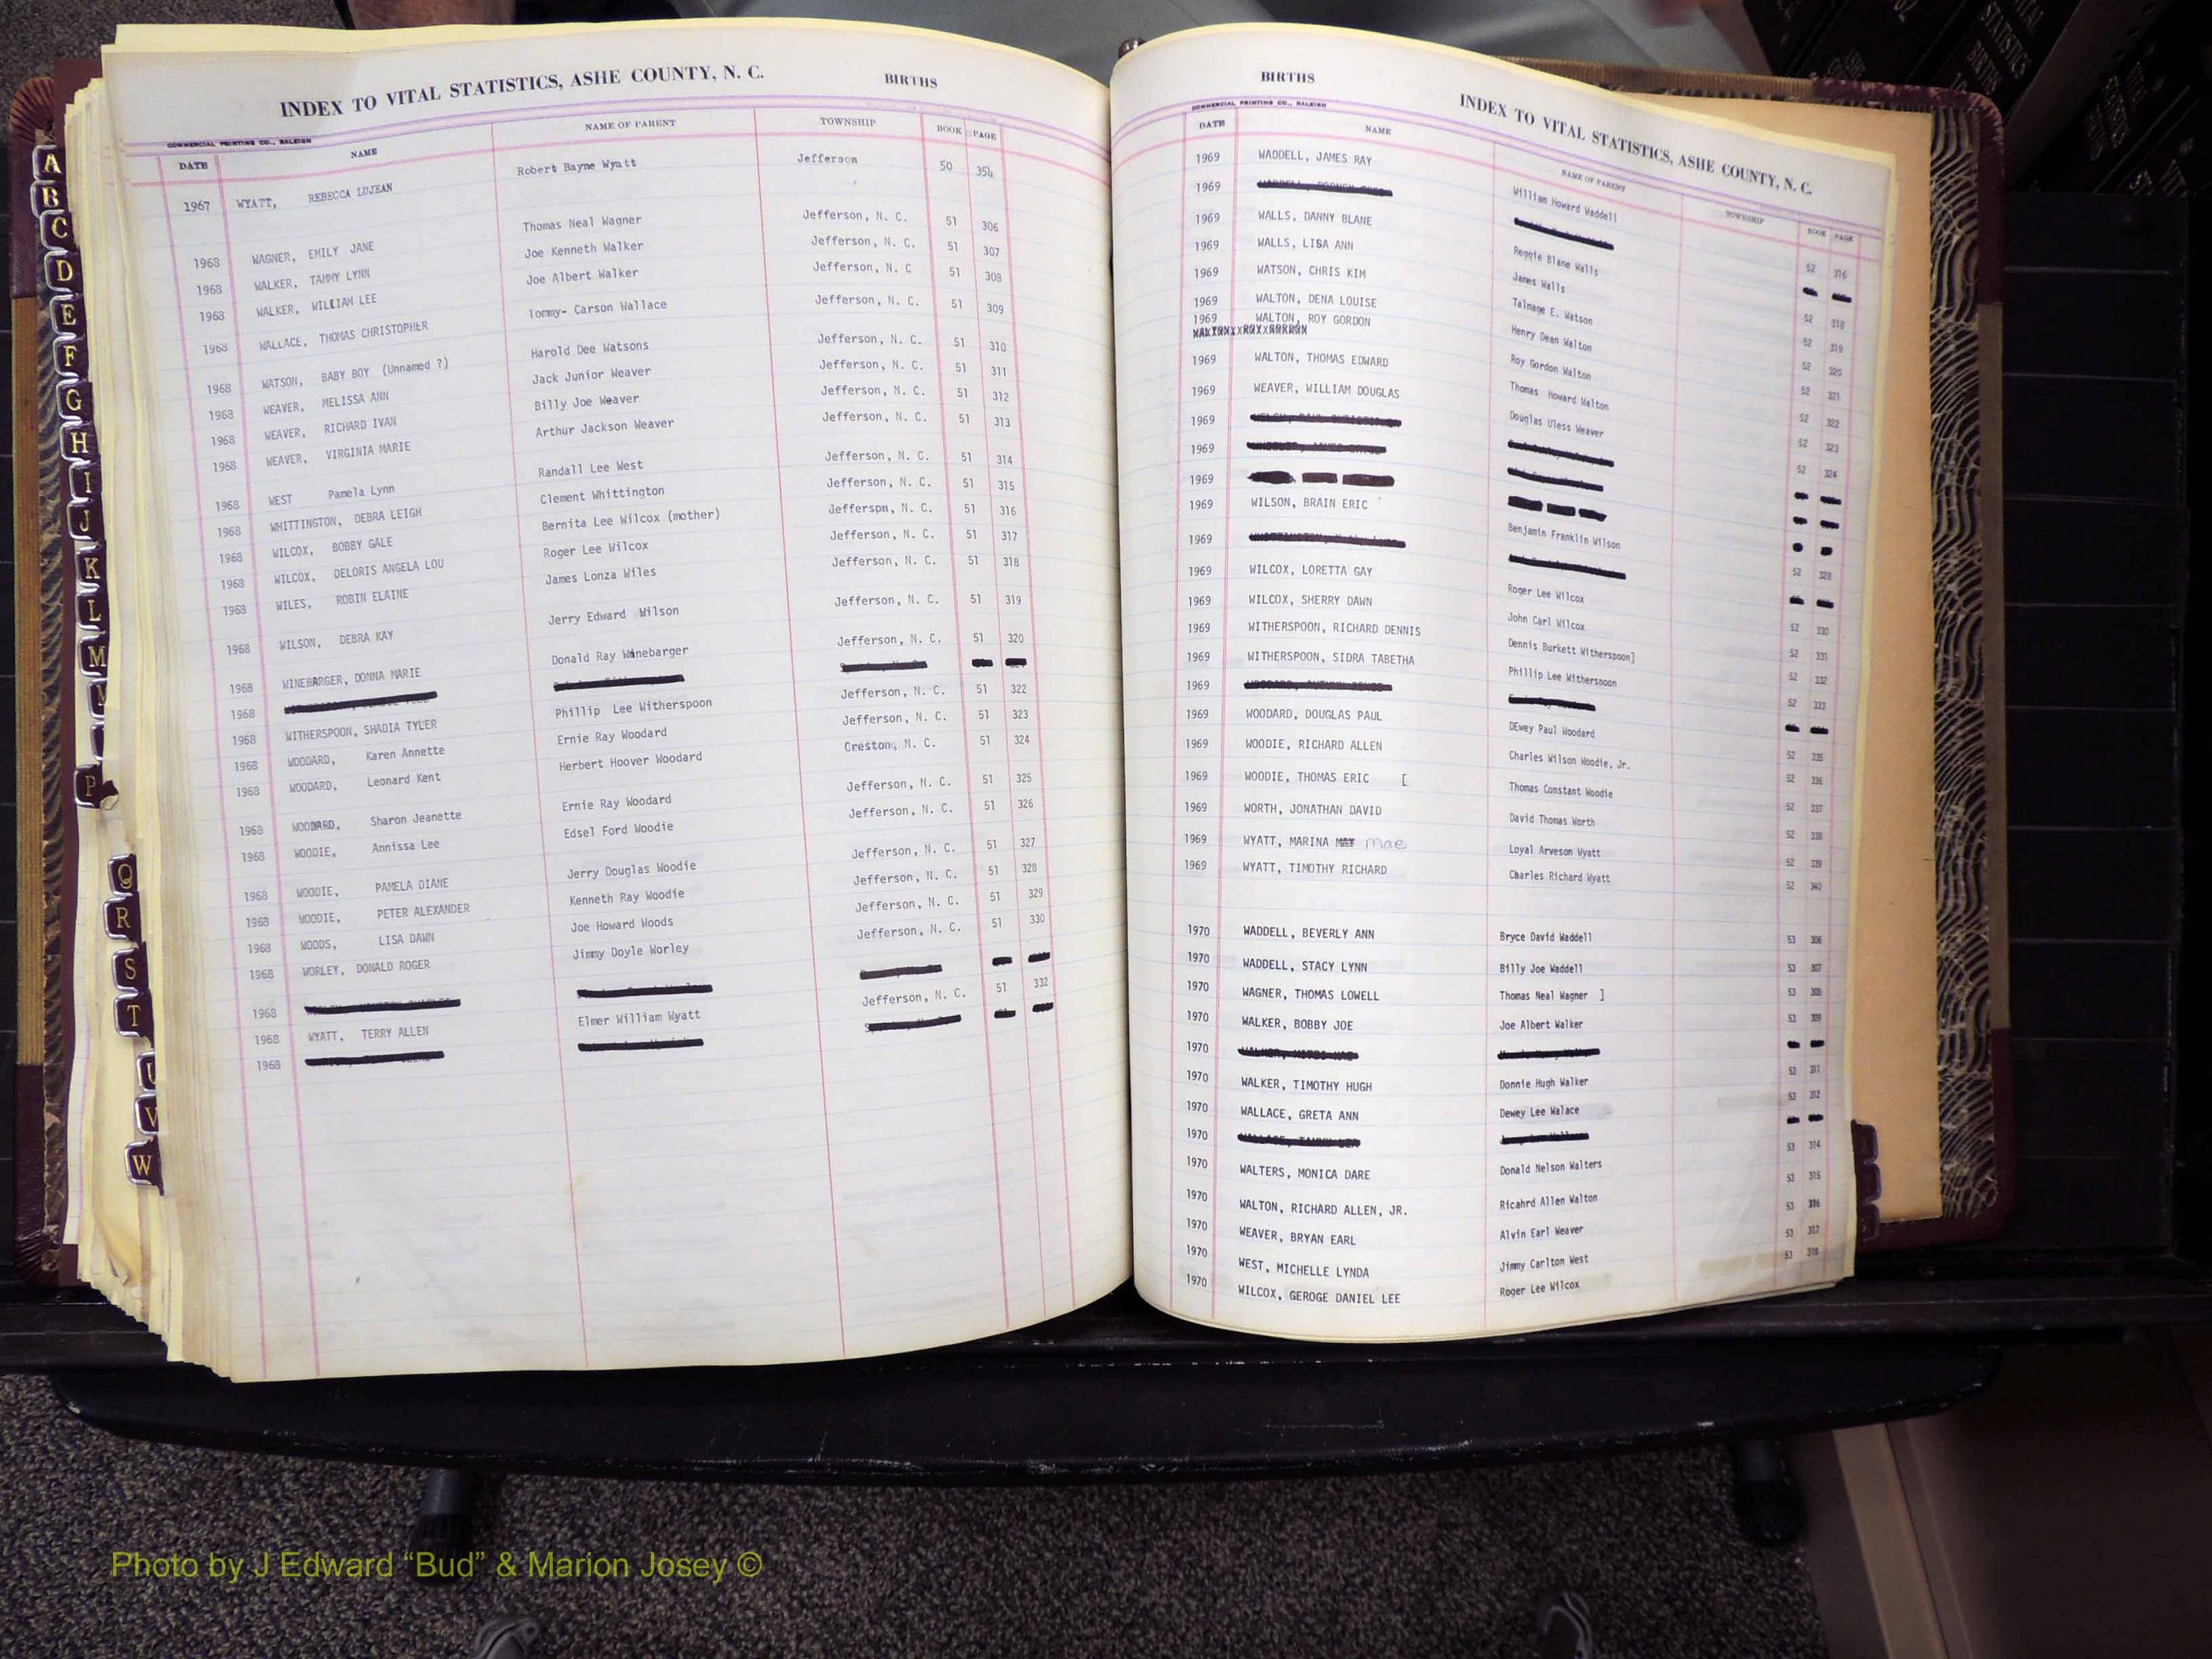 INDEX TO VITAL STATISTICS, ASHE COUNTY, N. C. BIRTHS
COMMERCIAL PRINTING CO., RALEIGH
DATE NAME NAME OF PARENT TOWNSHIP BOOK PAGE
1967 WYATT, REBECCA LUJEAN Robert Bayne Wyatt Jefferson 50 354
1968 WAGNER, EMILY JANE Thomas Neal Wagner Jefferson, N. C. 51 306
1968 WALKER, TAMMY LYNN Joe Kenneth Walker Jefferson, N. C. 51 307
1968 WALKER, WILLIAM LEE Joe Albert Walker Jefferson, N. C 51 308
1968 WALLACE, THOMAS CHRISTOPHER Tommy- Carson Wallace Jefferson, N. C. 51 309
1968 WATSON, BABY BOY (Unnamed ?) Harold Dee Watsons Jefferson, N. C. 51 310
1968 WEAVER, MELISSA ANN Jack Junior Weaver Jefferson, N. C. 51 311
1968 WEAVER, RICHARD IVAN Billy Joe Weaver Jefferson, N. C. 51 312
1968 WEAVER, VIRGINIA MARIE Arthur Jackson Weaver Jefferson, N. C. 51 313
1968 WEST Pamela Lynn Randall Lee West Jefferson, N. C. 51 314
1968 WHITTINGTON, DEBRA LEIGH Clement Whittington Jefferson, N. C. 51 315
1968 WILCOX, BOBBY GALE Bernita Lee Wilcox (mother) Jefferspn, N. C. 51 316
1968 WILCOX, DELORIS ANGELA LOU Roger Lee Wilcox Jefferson, N. C. 51 317
1968 WILES, ROBIN ELAINE James Lonza Wiles Jefferson, N. C. 51 318
1968 WILSON, DEBRA KAY Jerry Edward Wilson Jefferson, N. C. 51 319
1968 WINEBARGER, DONNA MARIE Donald Ray Winebarger Jefferson, N. C. 51 320
1968
1968 WITHERSPOON, SHADIA TYLER Phillip Lee Witherspoon Jefferson, N. C. 51 322
1968 WOODARD, Karen Annette Ernie Ray Woodard Jefferson, N. C. 51 323
1968 WOODARD, Leonard Kent Herbert Hoover Woodard Creston, N. C. 51 324
1968 WOODARD, Sharon Jeanette Ernie Ray Woodard Jefferson, N. C. 51 325
1968 WOODIE, Annissa Lee Edsel Ford Woodie Jefferson, N. C. 51 326
1968 WOODIE, PAMELA DIANE Jerry Douglas Woodie Jefferson, N. C. 51 327
1968 WOODIE, PETER ALEXANDER Kenneth Ray Woodie Jefferson, N. C. 51 328
1968 WOODS, LISA DAWN Joe Howard Woods Jefferson, N. C. 51 329
1968 WORLEY, DONALD ROGER Jimmy Doyle Worley Jefferson, N. C. 51 330
1968
1968 WYATT, TERRY ALLEN Elmer William Wyatt Jefferson, N. C. 51 332
1968
BIRTHS INDEX TO VITAL STATISTICS, ASHE COUNTY, N. C.
COMMERCIAL PRINTING CO., RALEIGH
DATE NAME NAME OF PARENT TOWNSHIP BOOK PAGE
1969 WADDELL, JAMES RAY William Howard Waddell 52 316
1969
1969 WALLS, DANNY BLANE Reggie Blane Walls 52 318
1969 WALLS, LISA ANN James Walls 52 319
1969 WATSON, CHRIS KIM Talmage E. Watson 52 320
1969 WALTON, DENA LOUISE Henry Dean Walton 52 321
1969 WALTON, ROY GORDON Roy Gordon Walton 52 322
1969 WALTON, THOMAS EDWARD Thomas Howard Walton 52 323
1969 WEAVER, WILLIAM DOUGLAS Douglas Uless Weaver 52 324
1969
1969
1969
1969 WILSON, BRAIN ERIC Benjamin Franklin Wilson 52 328
1969
1969 WILCOX, LORETTA GAY Roger Lee Wilcox 52 330
1969 WILCOX, SHERRY DAWN John Carl Wilcox 52 331
1969 WITHERSPOON, RICHARD DENNIS Dennis Burkett Witherspoon] 52 332
1969 WITHERSPOON, SIDRA TABETHA Phillip Lee Witherspoon 52 333
1969
1969 WOODARD, DOUGLAS PAUL DEwey Paul Woodard 52 335
1969 WOODIE, RICHARD ALLEN Charles Wilson Woodie, Jr. 52 336
1969 WOODIE, THOMAS ERIC [ Thomas Constant Woodie 52 337
1969 WORTH, JONATHAN DAVID David Thomas Worth 52 338
1969 WYATT, MARINA mae Loyal Arveson Wyatt 52 339
1969 WYATT, TIMOTHY RICHARD Charles Richard Wyatt 52 340
1970 WADDELL, BEVERLY ANN Bryce David Waddell 53 306
1970 WADDELL, STACY LYNN Billy Joe Waddell 53 307
1970 WAGNER, THOMAS LOWELL Thomas Neal Wagner ] 53 308
1970 WALKER, BOBBY JOE Joe Albert Walker 53 309
1970
1970 WALKER, TIMOTHY HUGH Donnie Hugh Walker 53 311
1970 WALLACE, GRETA ANN Dewey Lee Walace 53 312
1970
1970 WALTERS, MONICA DARE Donald Nelson Walters 53 314
1970 WALTON, RICHARD ALLEN, JR. Ricahrd Allen Walton 53 315
1970 WEAVER, BRYAN EARL Alvin Earl Weaver 53 316
1970 WEST, MICHELLE LYNDA Jimmy Carlton West 53 317
1970 WILCOX, GEROGE DANIEL LEE Roger Lee Wilcox 53 318
A
B
C
D
E
F
G
H
I
J
K
L
M
P
Q
R
S
T
U
V
W
VITAL
STATISTICS
Photo by J Edward “Bud” & Marion Josey ©